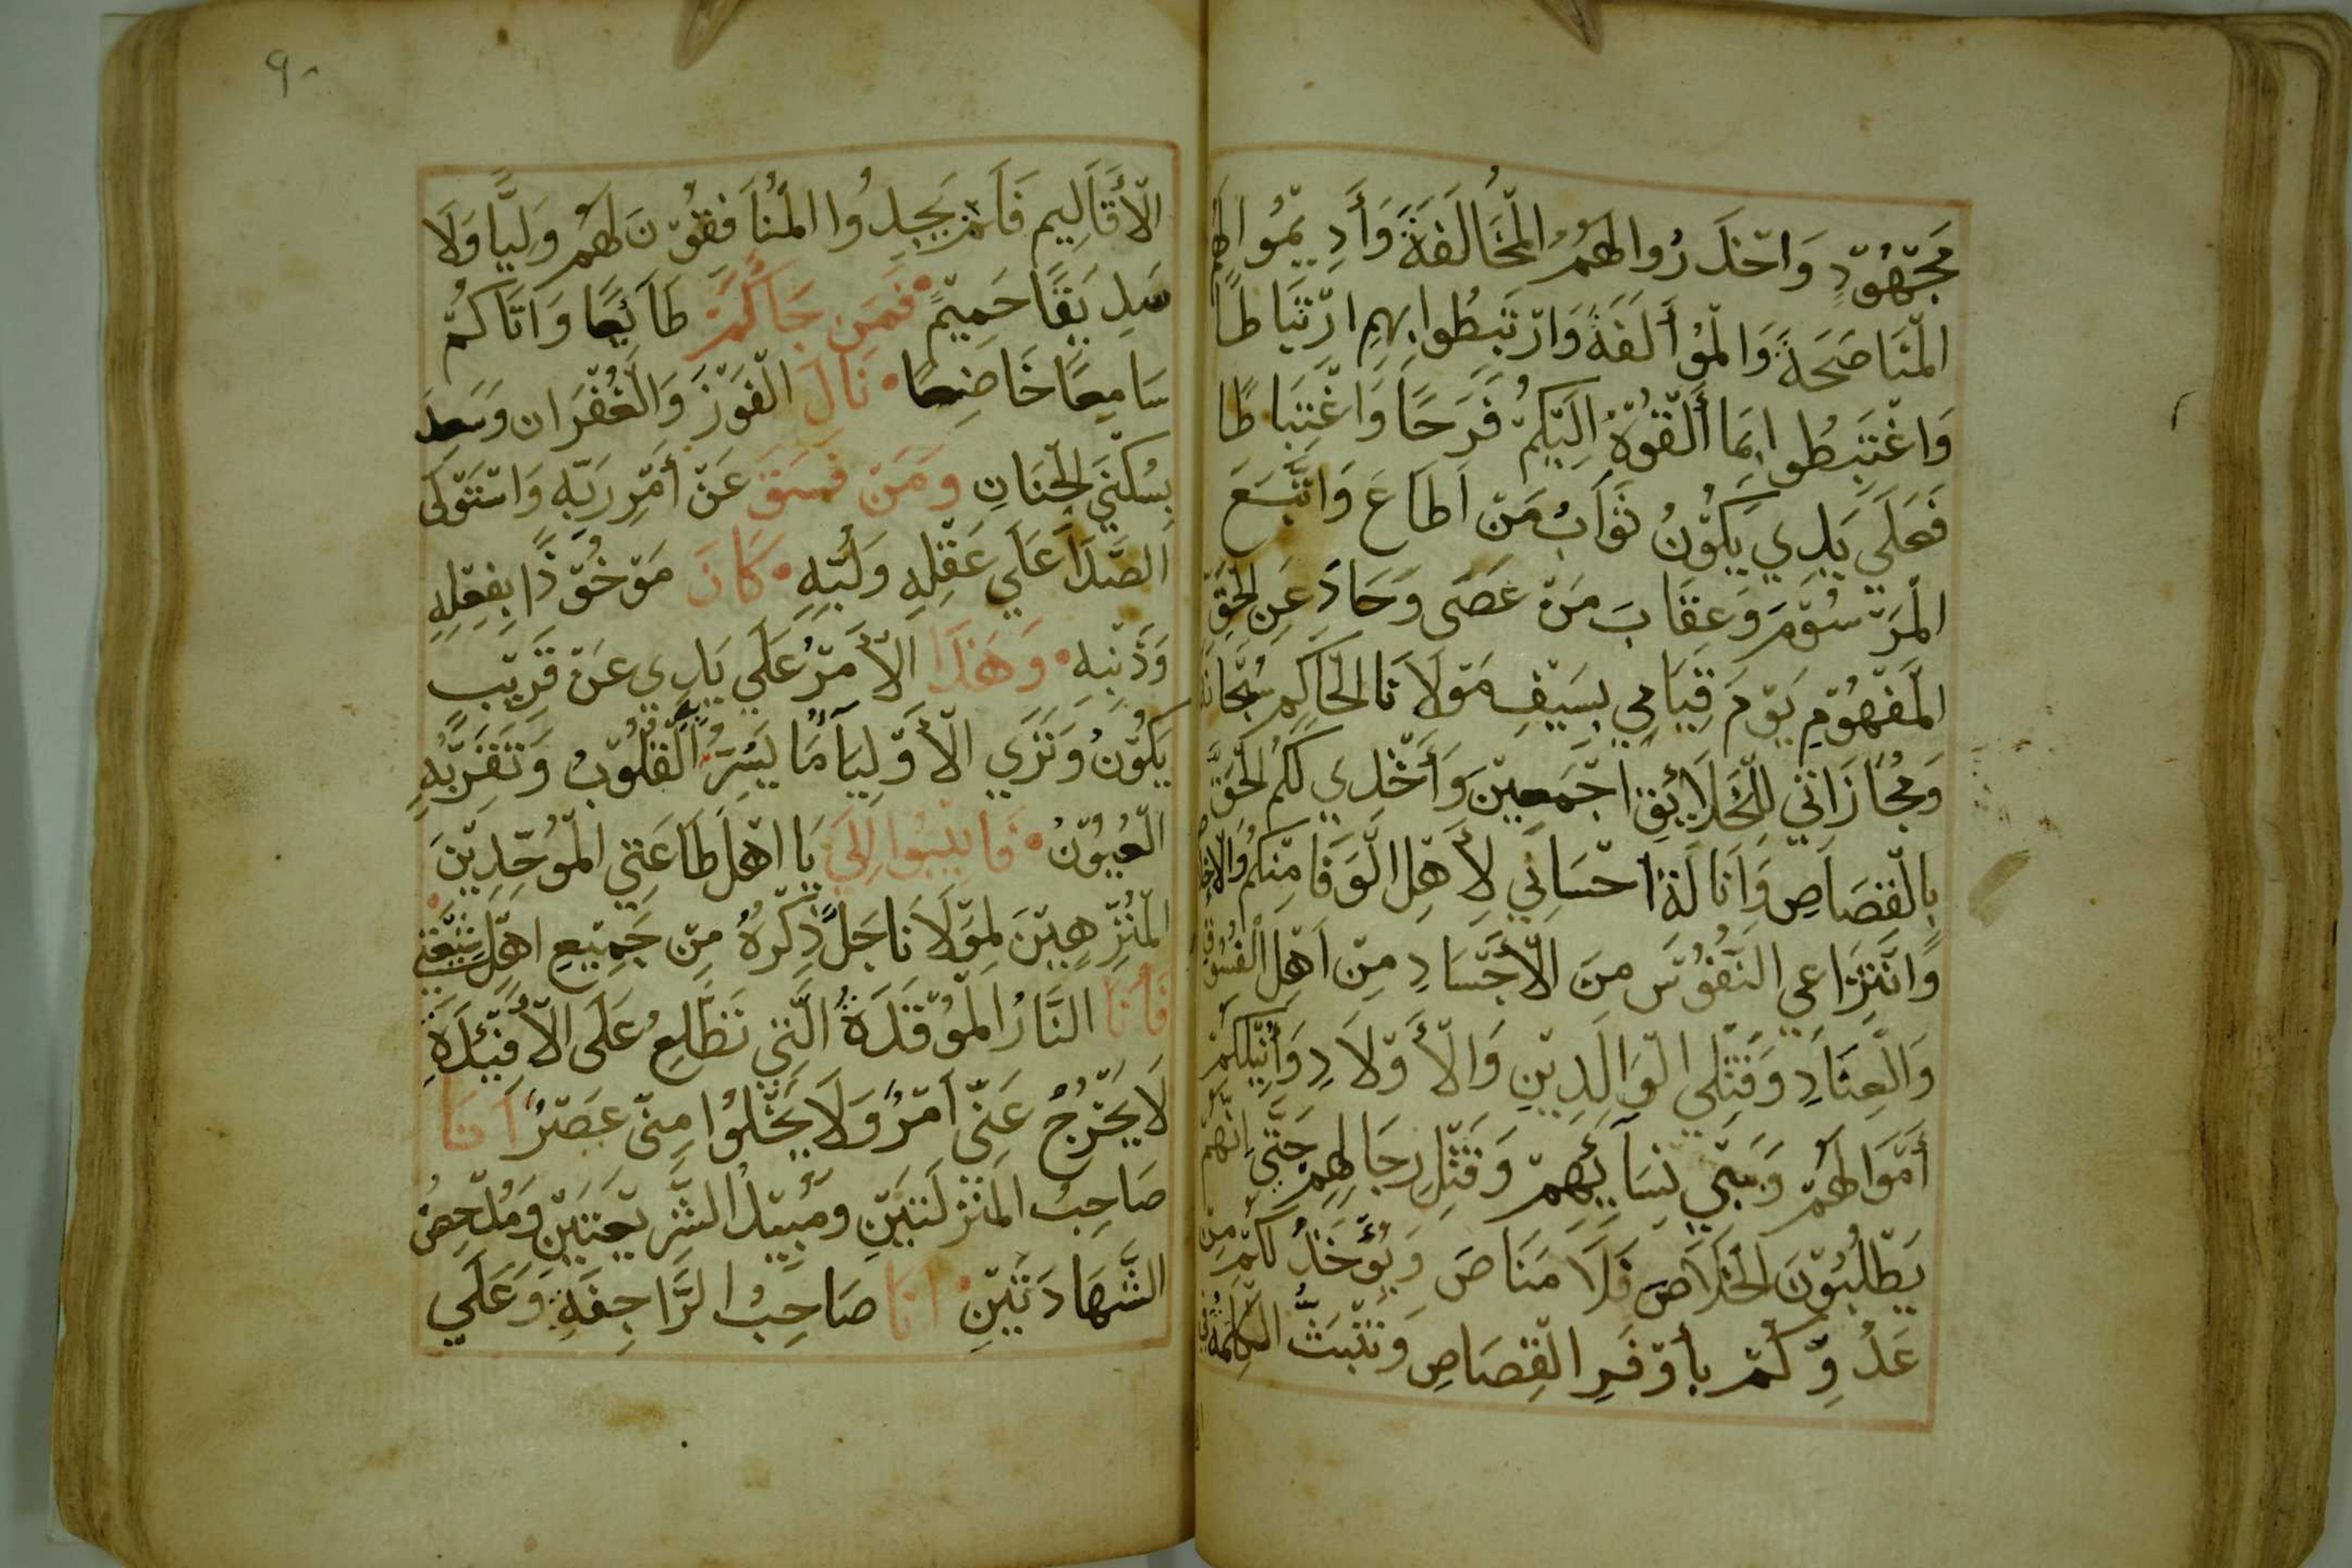 مَجْهُوْدٍ وَاحْذَرُوا لهَمُ المْخَالَفَةَ وَأَدِيْمُوا لهم
المْنَاصَحَةَ وَالمْوُأَلَفَةَ وَارْتَبِطُوا بِهِم ارْتِبَاطًا
وَاغْتَبِطُوا بِمَا أَلْقُوْهُ اِلَيْكُمْ فَرَحًا وَاغْتِبَاطًا
فَعَلَي يَدِي يَكُوْنُ ثَوَابُ مَنْ اَطَاعَ وَاتَّبَعَ
المْرَسُوْمَ وَعِقَابَ مَنْ عَصَى وَحَادَ عَنِ الحْقِ
المْفَهُوْمِ يَوْمَ قِيَامِي بِسَيْفِ مَوْلَانَا الحَاكِمِ سُبْحَانَه
وَمجُازَاتي لِلْخَلَائِقِ اجْمَعِيْنَ وَأَخْذِي لَكُم الحْقَ
بِالْقِصَاصِ وَاَنَالَةِ احْسَانِي لِأَهْلِ الْوَفَا مِنْكُمْ وَالاخلاص
وَانْتِزَاعِي النُّفُوْسَ مِنَ الْأَجْسَادِ مِنْ اَهْلِ الْفُسُوْقِ
وَالْعِنَادِ وَقَتْلِي الْوَالِدِيْنِ وَالْأَوْلَادِ وَأُنِيْلكُمْ
أَمْوَالهَمُ وَسَبْي نِسَائِهِمْ وَقَتْلِ رِجَالِهِم حَتَّى اِنَّهُمْ
يَطْلُبُوْنَ الخْلَاصَ فَلَا مَنَاصَ وَيُؤْخَذُ لَكُمْ مِنْ
عَدُوِّكُمْ بِأَوْفَرِ الْقِصَاصِ وَتَثْبَتُ الْكَلِمَةُ في
٩٠
الْأَقَالِيم فَلَمْ يَجِدُوا المْنُافِقُوْنَ لهَمُ وَلِيًّا وَلَا
صَدِيْقًا حَمِيْمً • فَمَن جَاكُمْ طَائِعًا وَاَتَاكُمْ
سَامِعًا خَاضِعًا • نَالَ الْفَوْزَ وَالْغُفْرَان وَسَعِدَ
بِسُكْنَي الْجِنَانِ وَمَنْ فَسَقَ عَنْ أَمْرِ رَبِّهِ وَاسْتَوْلَى
الصَّدَا عَلَي عَقْلِهِ وَلُبِّهِ • كَانَ مَوْخُوْذًا بِفِعْلِهِ
وَذَنْبِهِ • وَهَذَا الْأَمْرُ عَلَي يَدِي عَنْ قَرِيْب
يَكُوْنُ وَنَرَي الْأَوْلِيَا مَا يَسُرُّ بِهِ الْقُلُوْبُ وَتَقَرُّ بِهِ
الْعُيُوْنُ • فَانِيْبُوا اِلَيَ يَا اهْلَ طَاعَتِي المْوُحِّدِيْنَ
المْنُزِّهِيْنَ لِمَوْلَانَا جَلَّ ذِكْرَهُ مِنْ جَمِيْعِ اهْلِ شِيْعَتي •
فَأَنَا النَّارُ المْوُقَدَةُ الَّتِي تَطَّلِعُ عَلَى الْأَفْئِدَةِ
لَا يَخْرُجُ عَنّي اَمْرُ وَلَا يَخْلُوا مِنّي عَصْرُ اَنَا
صَاحِبُ المَنْزِلَتَيْنِ وَمُبِيْدُ الشَّرِيْعَتَيْنِ وَمُدْحِضُ
الشَّهَادَتَيْنِ • انَا صَاحِبُ الرَّاجِفَةِ وَعَلَي